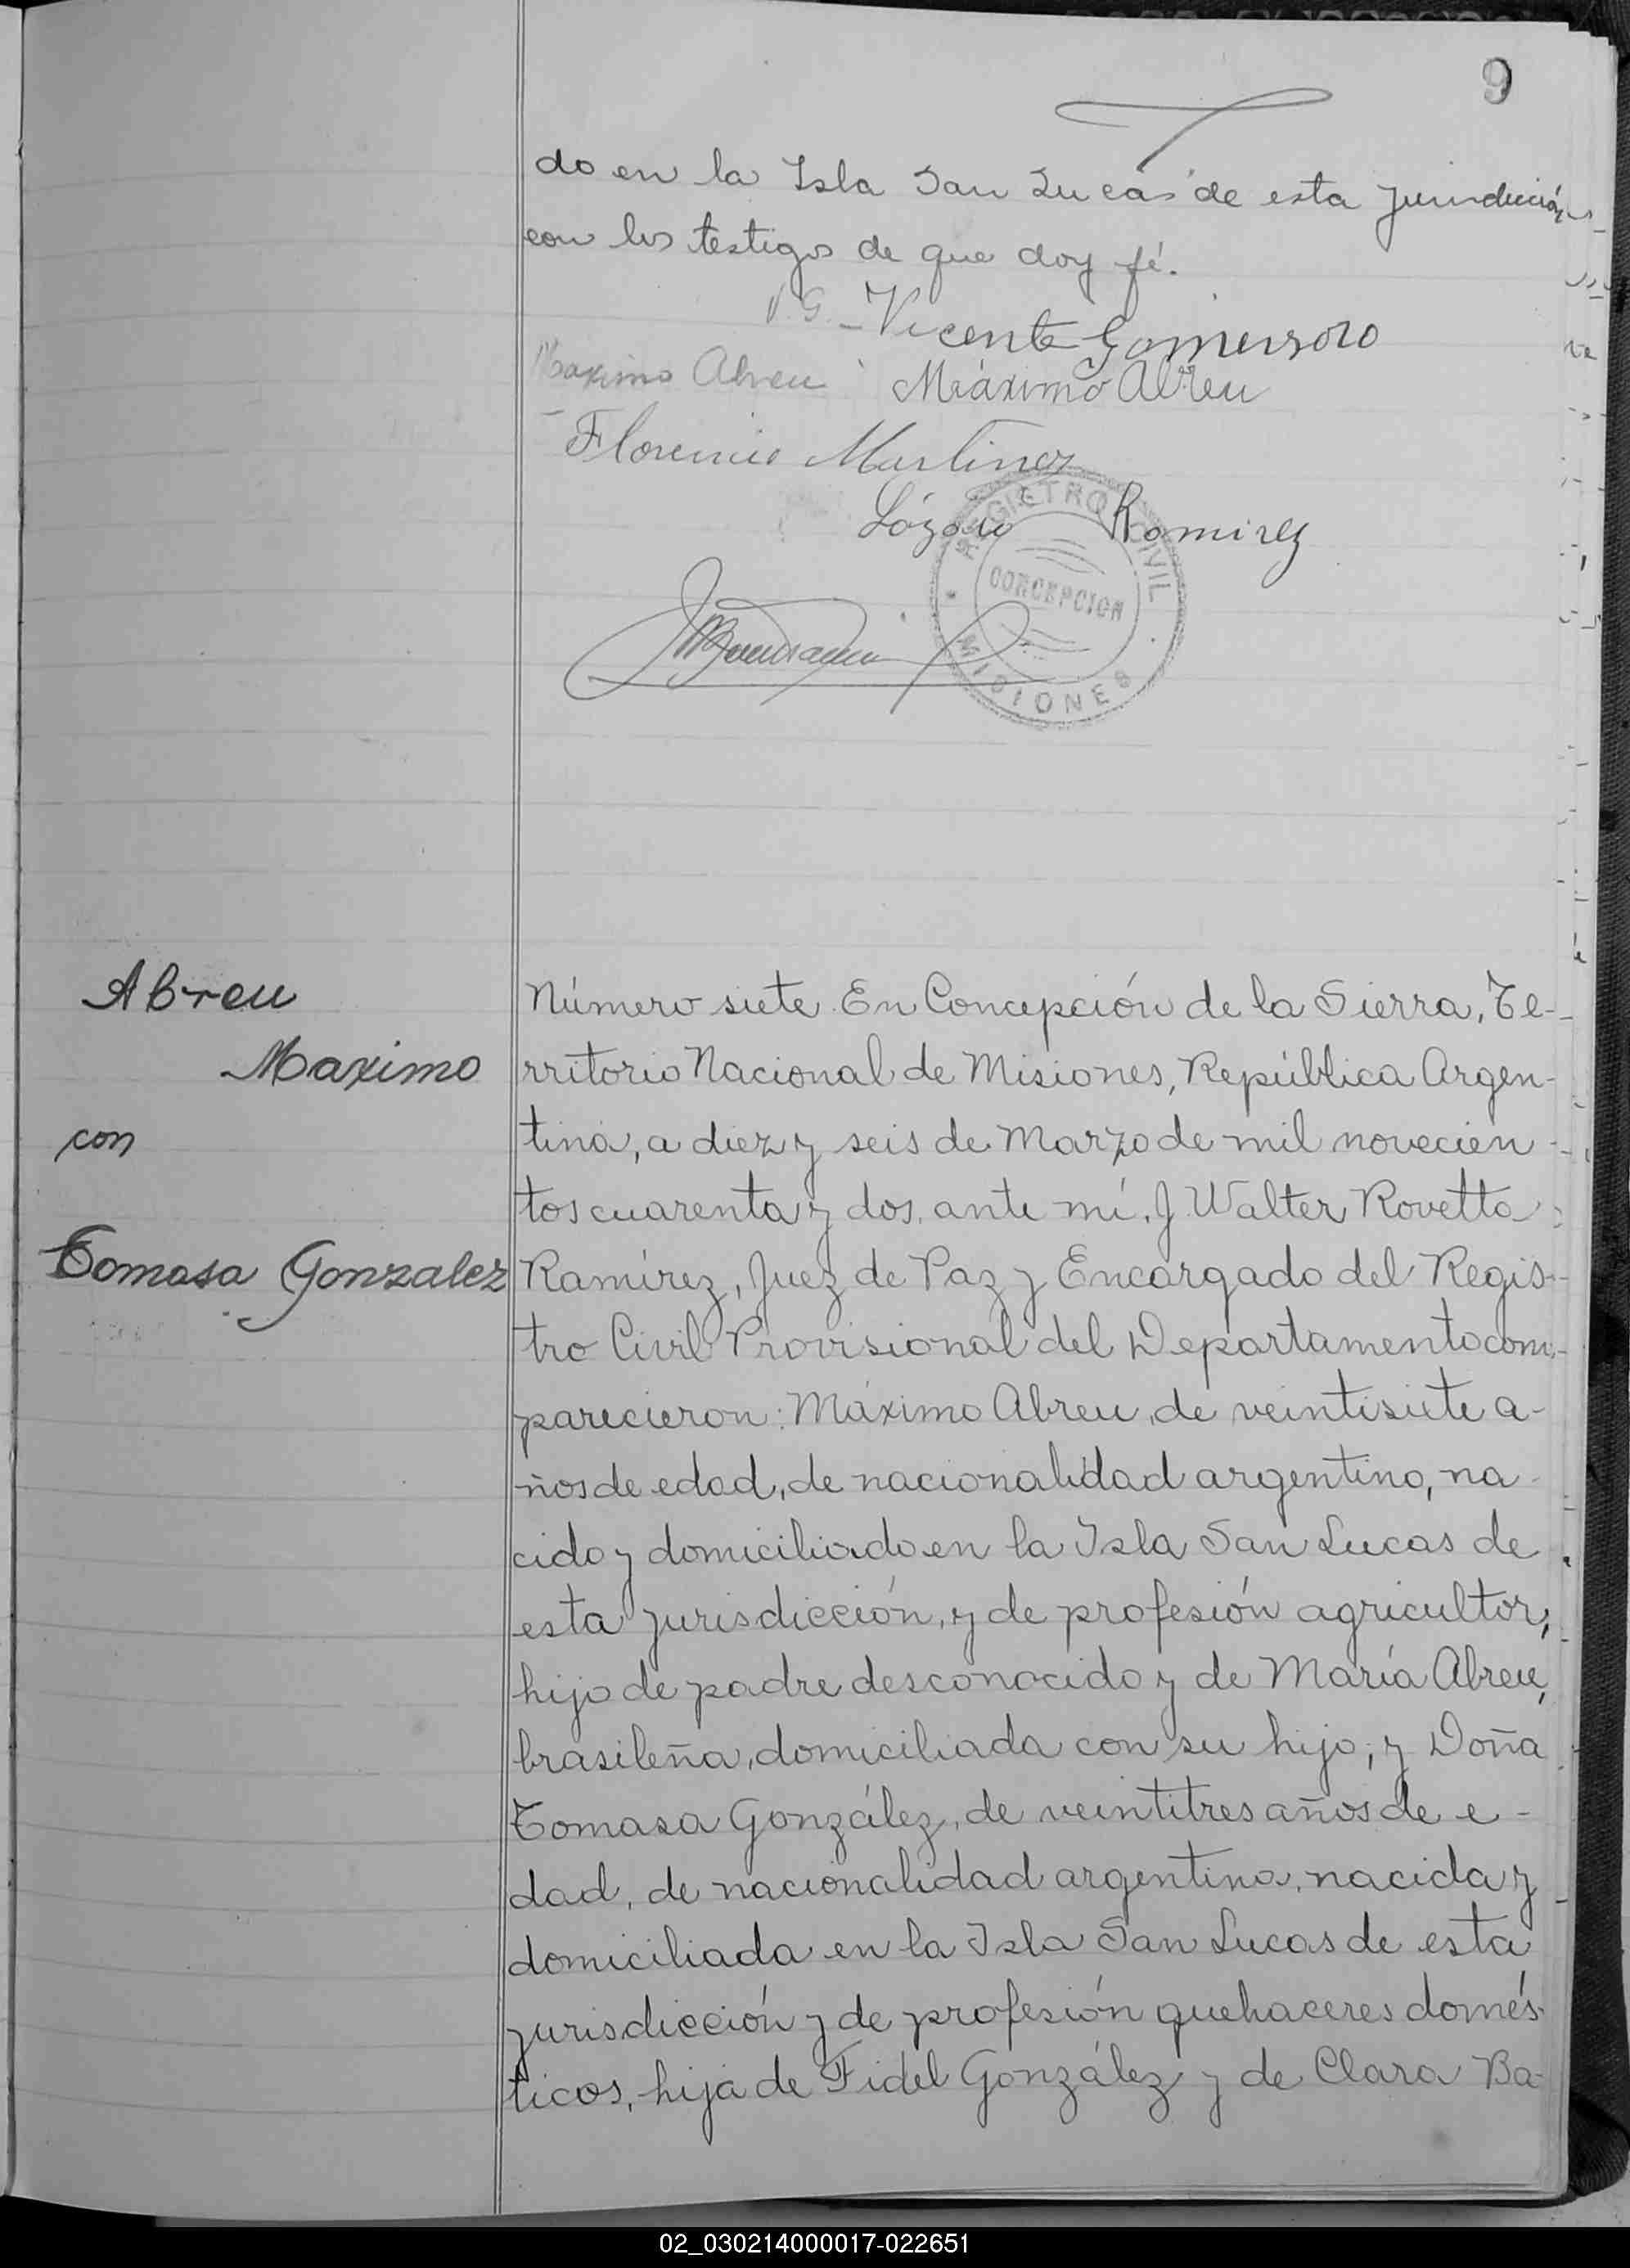 9
do en la Isla San Lucas de esta jurisdicción
con los testigos de que doy fé.
Vicente
Maximo Abreu Máximo Abreu
Martinez
Ramirez
REGISTRO CIVIL
CONCEPCION
MISIONES
Abreu
Maximo
con
Tomasa Gonzalez
Número siete. En Concepción de la Sierra, Te-
rritorio Nacional de Misiones, República Argen-
tina, a diez y seis de Marzo de mil novecien-
tos cuarenta y dos, ante mí, J Walter Rovetta
Ramírez, Juez de Paz y Encargado del Regis-
tro Civil Provisional del Departamento com-
parecieron: Máximo Abreu, de veintisiete a-
ños de edad, de nacionalidad argentino, na-
cido y domiciliado en la Isla San Lucas de
esta jurisdicción, y de profesión agricultor,
hijo de padre desconocido y de María Abreu,
brasileña, domiciliada con su hijo; y Doña
Tomasa González, de veintitres años de e-
dad, de nacionalidad argentina, nacida y
domiciliada en la Isla San Lucas de esta
jurisdicción y de profesión quehaceres domés-
ticos, hija de Fidel González y de Clara Ba-
02_030214000017-022651